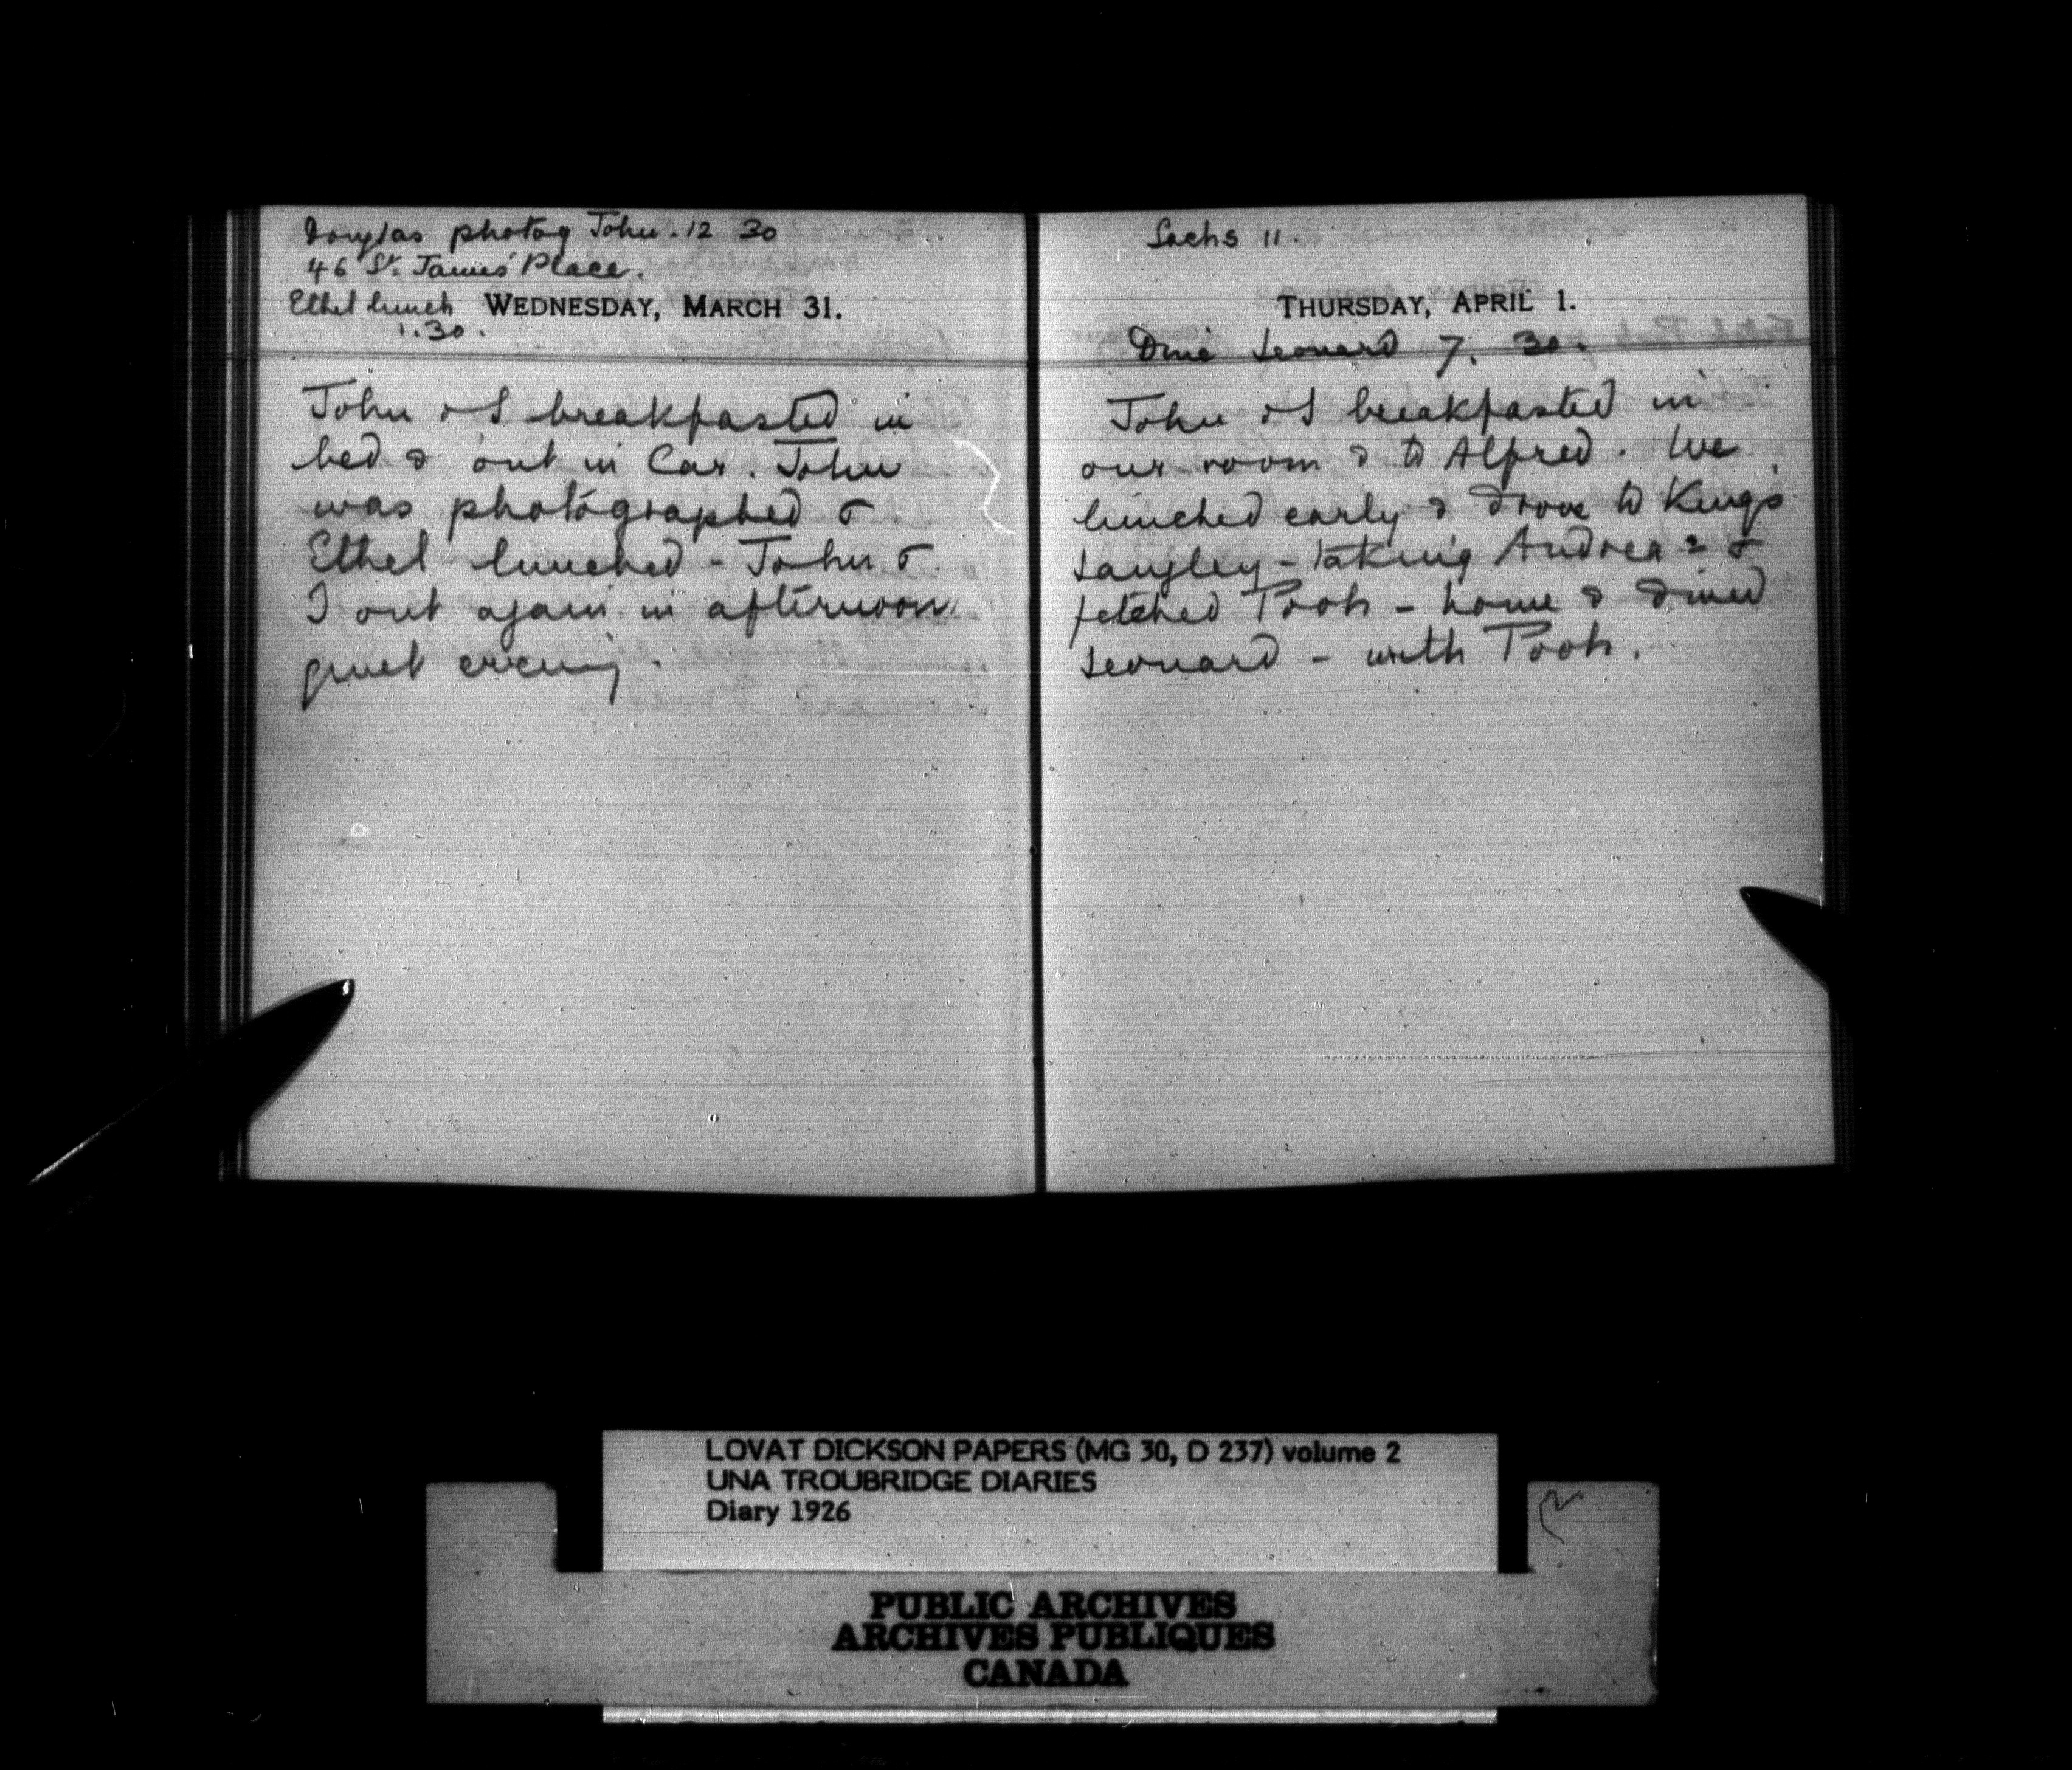 Douglas photog John. 12 30
46 St. James' Place.
Ethel lunch WEDNESDAY, MARCH 31.
1.30.
John & I breakfasted in
bed & out in Car. John
was photographed &
Ethel lunched - John &
I out again in afternoon
quiet evening.
Sachs 11.
THURSDAY, APRIL 1.
Dine Leonard 7. 30.
John & I breakfasted in
our room & to Alfred. We
lunched early & drove to Kings
Langley - taking Andrea &
fetched Pooh - home & dined
Leonard - with Pooh.
LOVAT DICKSON PAPERS (MG 30, D 237) volume 2
UNA TROUBRIDGE DIARIES
Diary 1926
PUBLIC ARCHIVES
ARCHIVES PUBLIQUES
CANADA